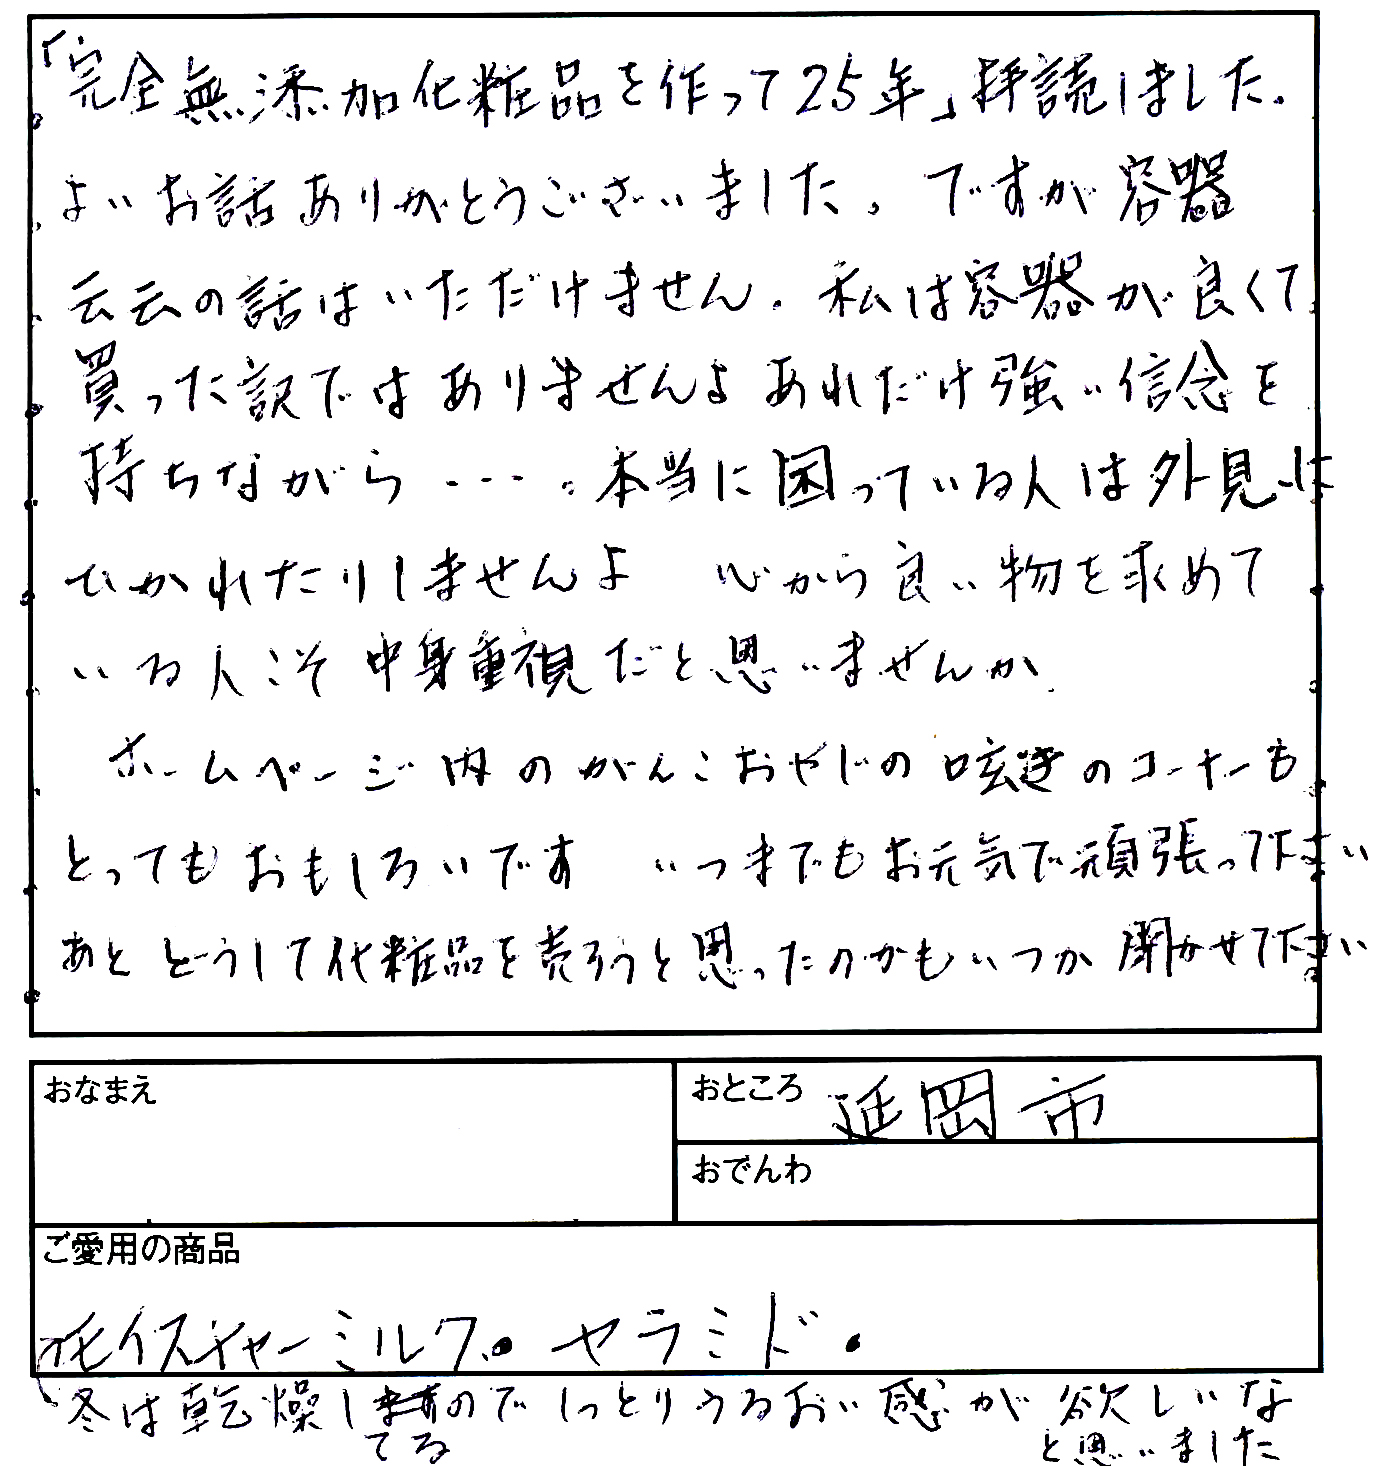 「完全無添加化粧品を作って25年」拝読しました。
よいお話ありがとうございました。ですが容器
云云の話はいただけません。私は容器が良くて
買った訳ではありませんよ あれだけ強い信念を
持ちながら・・・。本当に困っている人は外見に
ひかれたりしませんよ 心から良い物を求めて
いる人こそ中身重視だと思いませんか
ホームページ内のがんこおやじの呟きのコーナーも
とってもおもしろいです いつまでもお元気で頑張って下さい
あとどうして化粧品を売ろうと思ったのかもいつか聞かせて下さい
おなまえ
おところ 延岡市
おでんわ
ご愛用の商品
モイスチャーミルク。セラミド。
冬は乾燥しますのでしっとりうるおい感が欲しいな
てる
と思いました